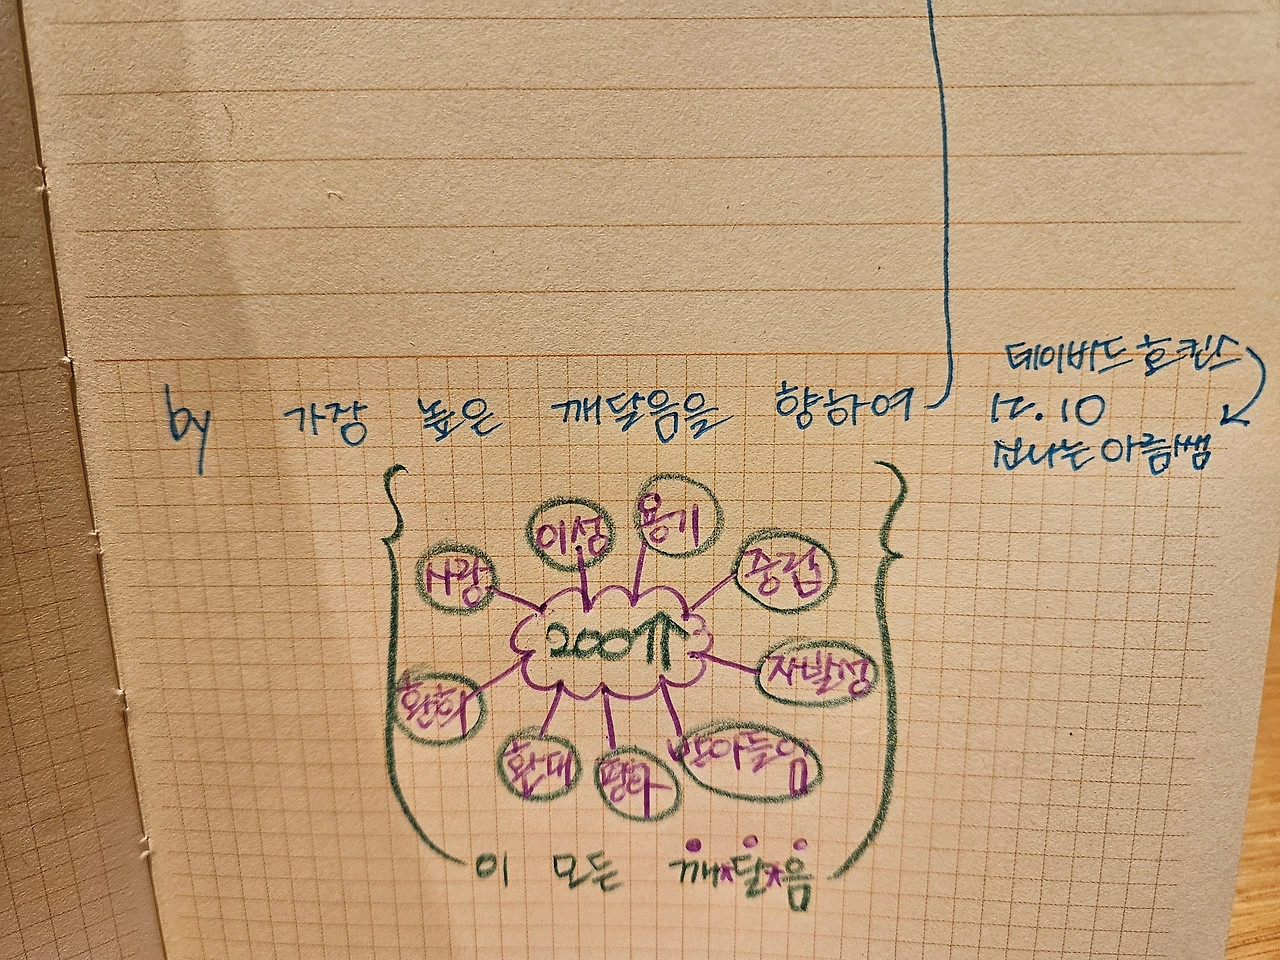 by 가장 높은 깨달음을 향하여
데이비드 호킨스
12.10
신나는 아름쌤
이성
용기
사랑
중립
200↑
자발성
환희
환대
평화
받아들임
이 모든 깨*달*음